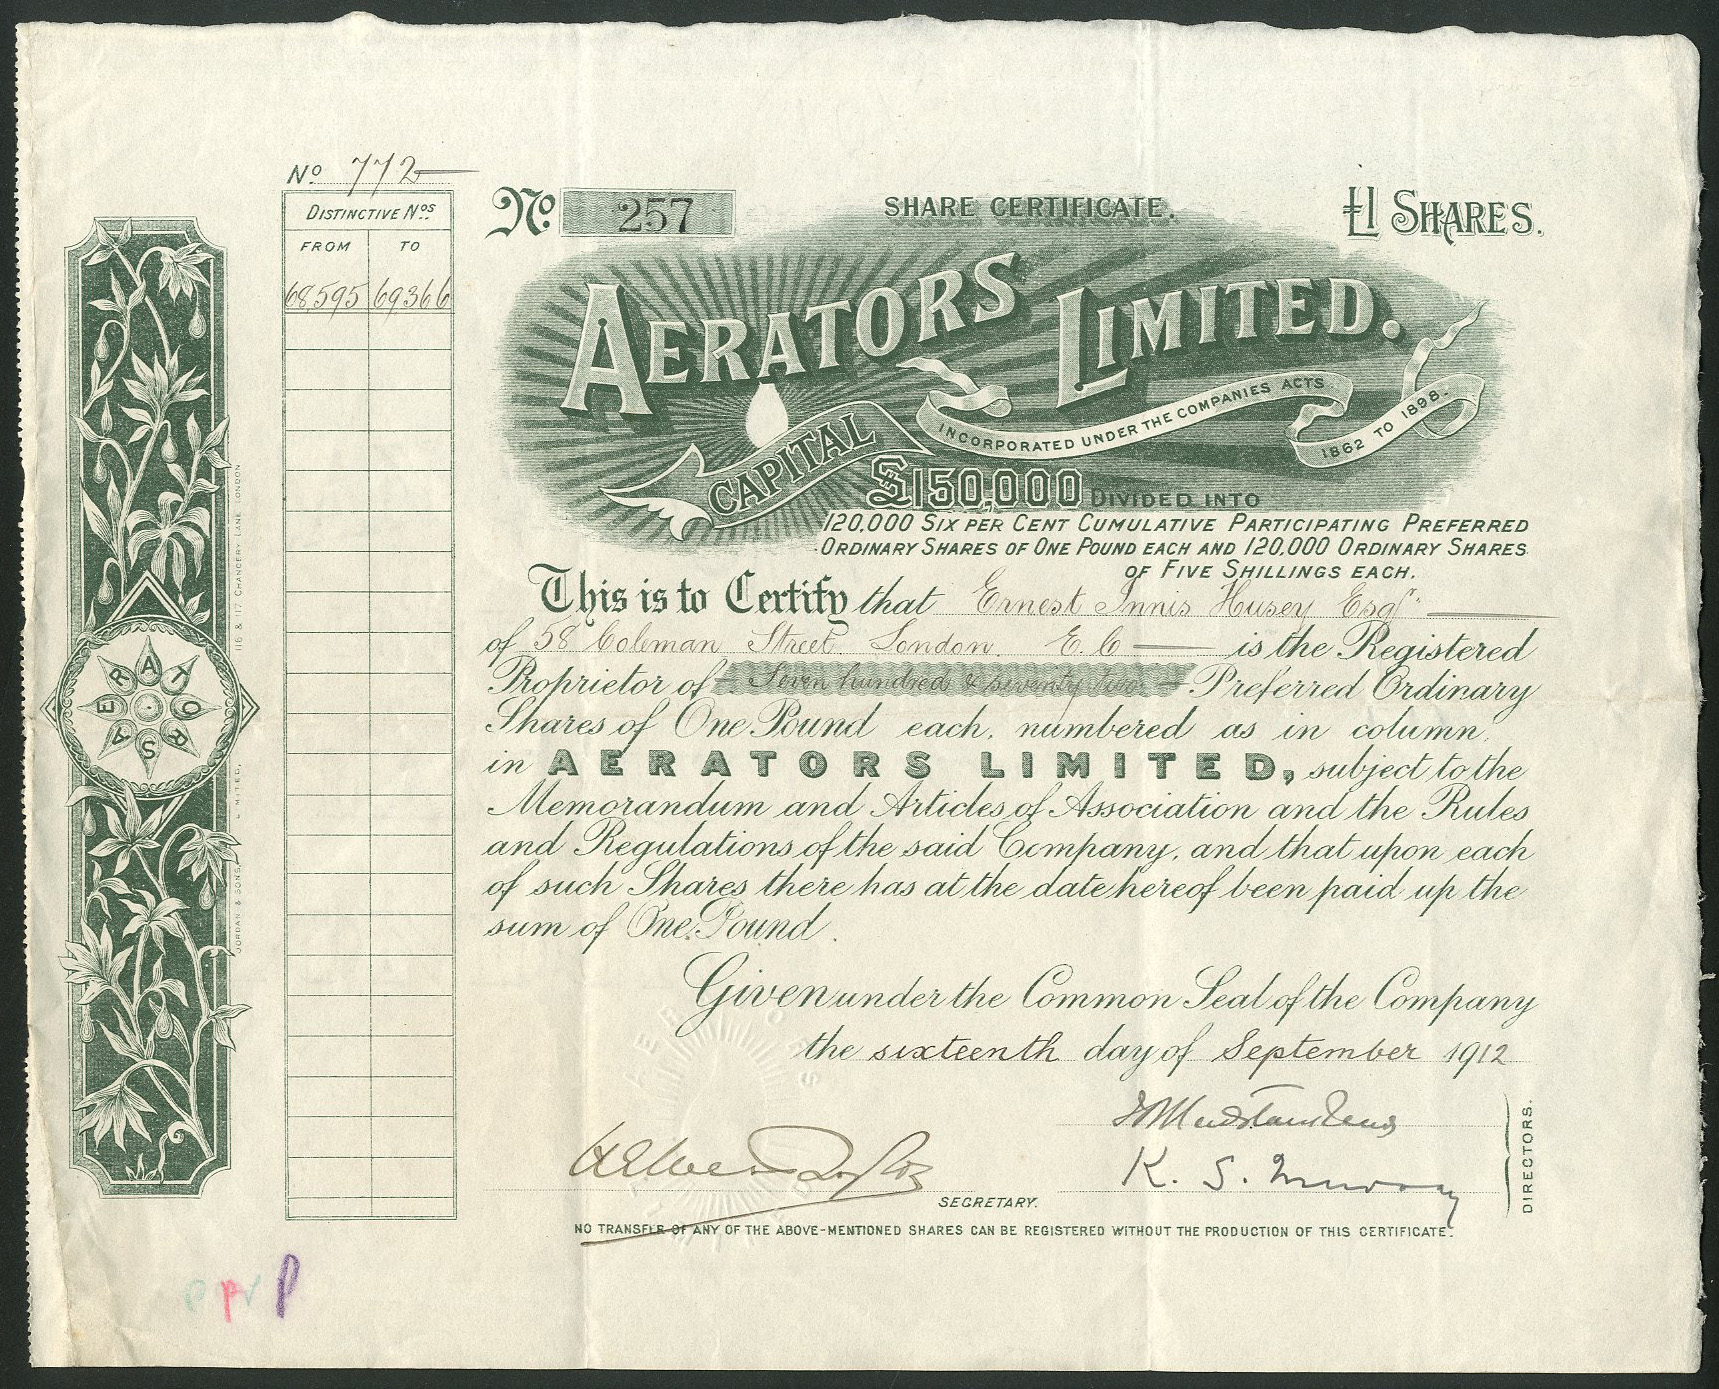 No 772
DISTINCTIVE Nos
FROM TO
68,595 69366
No. 257
SHARE CERTIFICATE.
£1 SHARES.
AERATORS LIMITED.
INCORPORATED UNDER THE COMPANIES ACTS 1862 TO 1898.
CAPITAL
£150,000 DIVIDED INTO
120,000 SIX PER CENT CUMULATIVE PARTICIPATING PREFERRED
ORDINARY SHARES OF ONE POUND EACH AND 120,000 ORDINARY SHARES
OF FIVE SHILLINGS EACH.
This is to Certify that Ernest Innis Husey Esqr.
of 58 Coleman Street. London. E.C is the Registered
Proprietor of Seven hundred & seventy two Preferred Ordinary
Shares of One Pound each, numbered as in column,
in AERATORS LIMITED, subject to the
Memorandum and Articles of Association and the Rules
and Regulations of the said Company, and that upon each
of such Shares there has at the date hereof been paid up the
sum of One Pound.
Given under the Common Seal of the Company
the sixteenth day of September 1912
K. S. Murray
DIRECTORS.
SECRETARY.
NO TRANSFER OF ANY OF THE ABOVE-MENTIONED SHARES CAN BE REGISTERED WITHOUT THE PRODUCTION OF THIS CERTIFICATE.
AERATORS
JORDAN & SONS, LIMITED, 116 & 117 CHANCERY LANE, LONDON